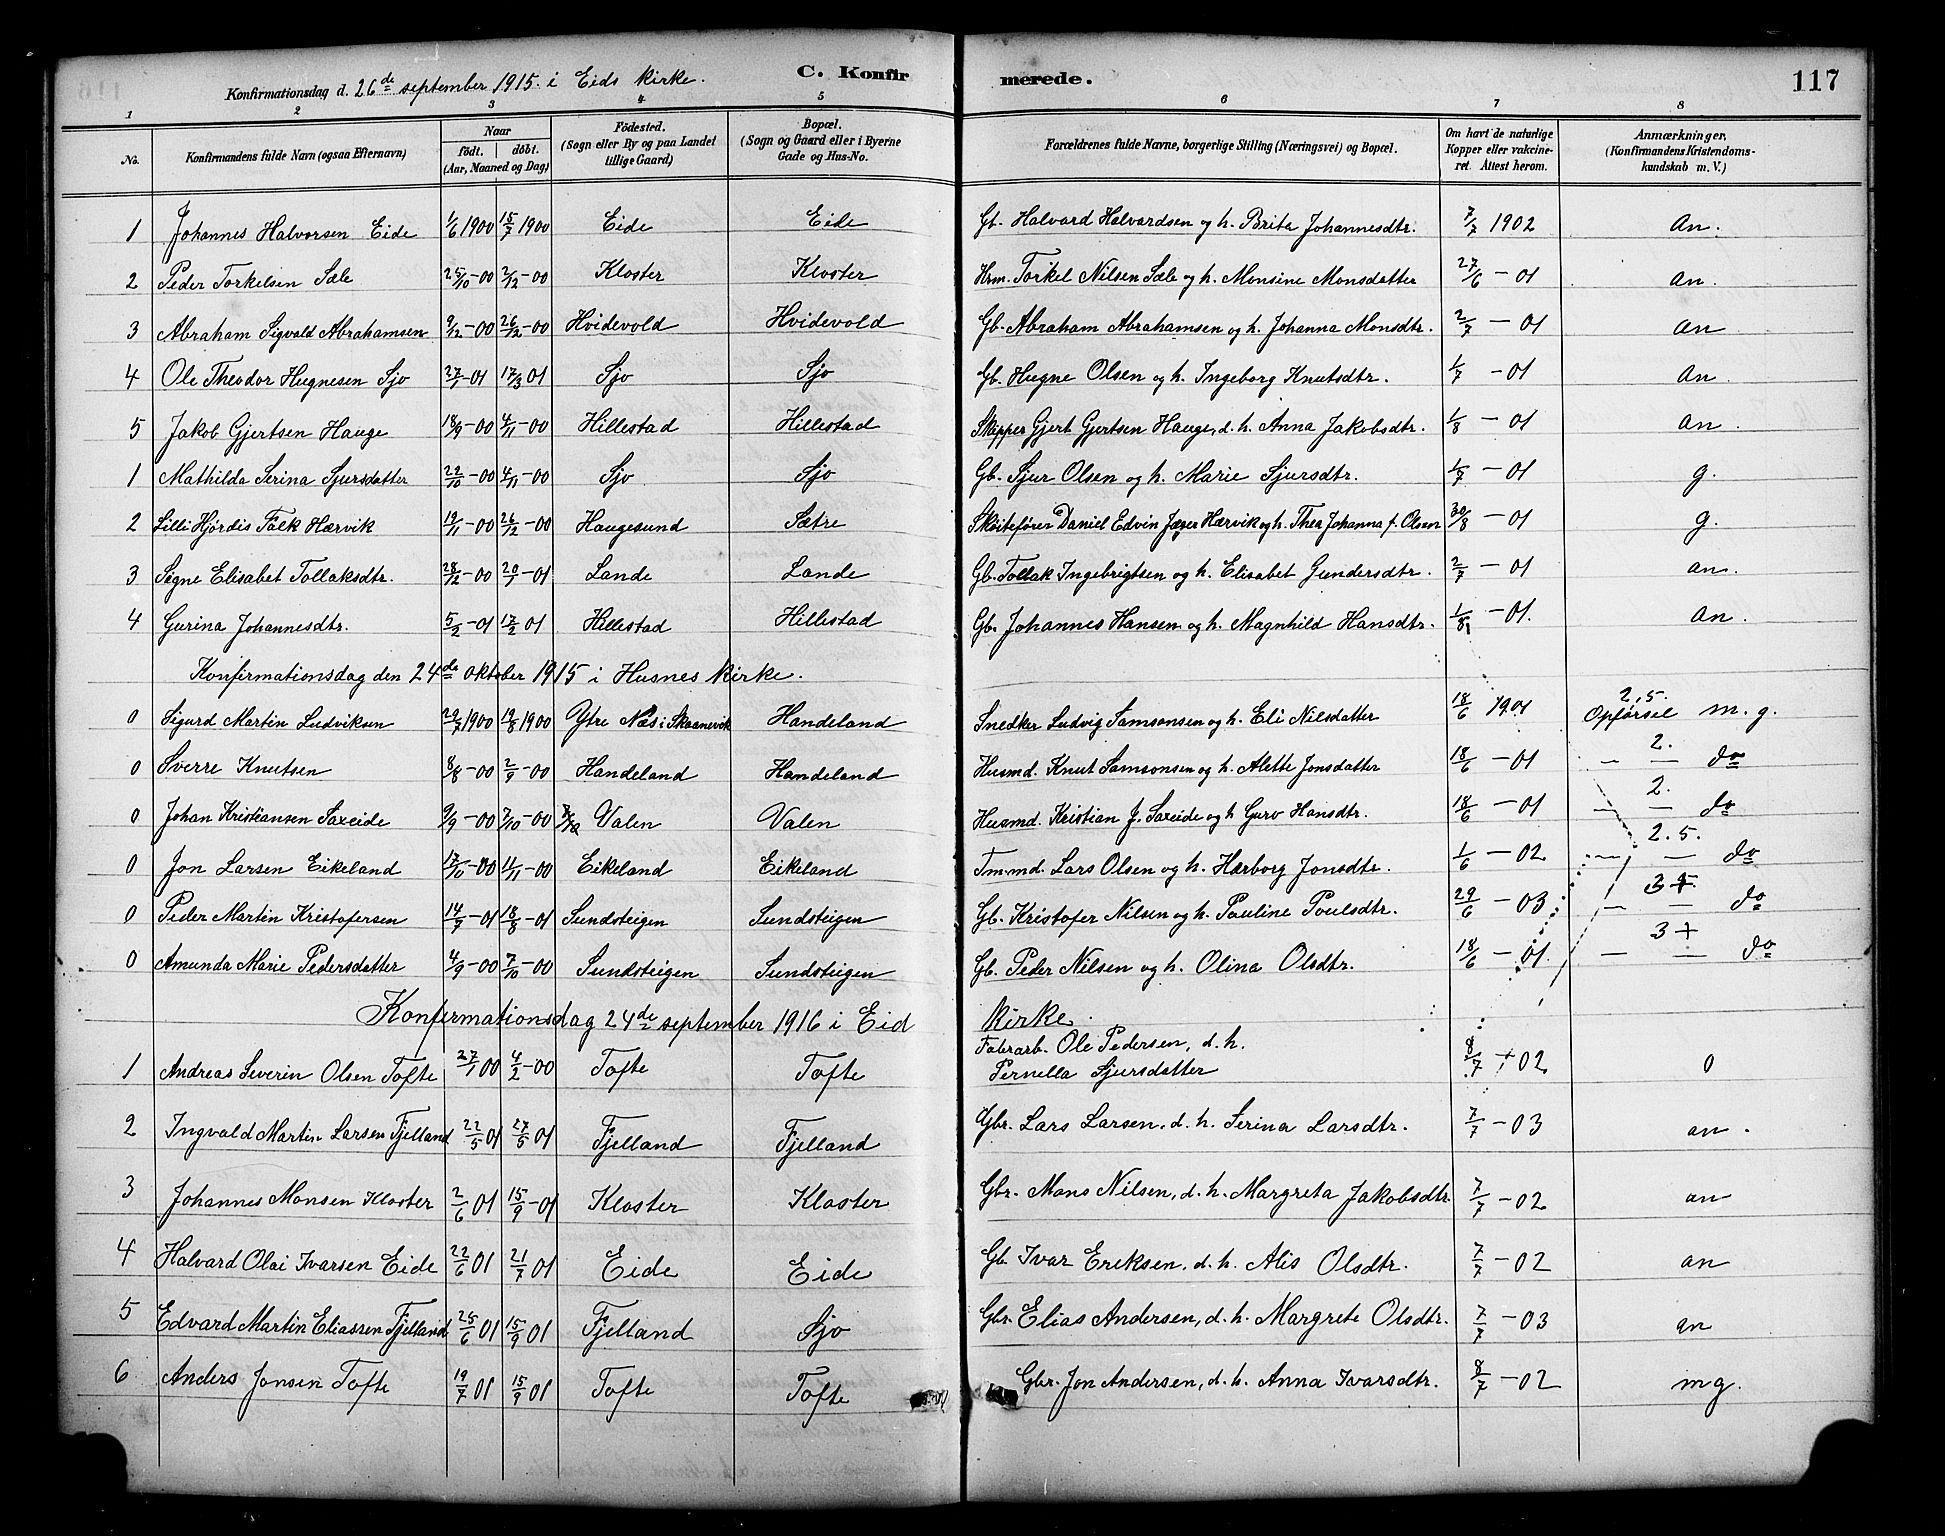 Konfirmationsdag d. 26de september 1915. i Eids Kirke. C. Konfirmerede. 117
1 2 3 4 5 6 7 8
No. Konfirmandens fulde Navn (ogsaa Efternavn) Naar født. døbt. (Aar, Maaned og Dag) Fødested. (Sogn eller By og paa Landet tillige Gaard) Bopæl. (Sogn og Gaard eller i Byerne Gade og Hus-No. Forældrenes fulde Navne, borgerlige Stilling (Næringsvei) og Bopæl. Om havt de naturlige Kopper eller vakcineret. Attest herom. Anmærkninger. (Konfirmandens Kristendomskundskab m. V.)
1 Johannes Halvorsen Eide 1/6 1900 15/7 1900 Eide Eide Gb. Halvard Halvardsen og h. Brita Johannesdtr. 7/7 1902 an.
2 Peder Torkelsen Sæle 25/10-00 2/12-00 Kloster Kloster Hrm. Torkel Nilsen Sæle og h. Monsine Monsdatter 27/6-01 an.
3 Abraham Sigvald Abrahamsen 9/12-00 26/12-00 Hvidevold Hvidevold Gb. Abraham Abrahamsen og h. Johanna Monsdtr. 2/7-01 an
4 Ole Theodor Hugnesen Sjo 27/1-01 17/3 01 Sjo Sjo Gb. Hugne Olsen og h. Ingeborg Knutsdtr. 1/7-01 an
5 Jakob Gjertsen Hauge 18/9-00 4/11-00 Hillestad Hillestad Skipper Gjert Gjertsen Hauge, d. h. Anna Jakobsdtr. 1/8-01 an.
1 Mathilda Serina Sjursdatter 22/10-00 4/11-00 Sjo Sjo Gb. Sjur Olsen og h. Marie Sjursdtr. 1/7-01 g.
2 Lilli Hjördis Falk Hærvik 19/11-00 26/12-00 Haugesund Sætre Skøitefører Daniel Edvin Jæger Hærvik og h. Thea Johanna f. Olsen 30/8-01 g.
3 Signe Elisabet Tollaksdtr. 28/12-00 20/1-01 Lande Lande Gb. Tollak Ingebrigtsen og h. Elisabet Gundersdtr. 2/7-01 an.
4 Gurina Johannesdtr. 5/2-01 17/2 01 Hillestad Hillestad Gb. Johannes Hansen og h. Magnhild Hansdtr. 1/8-01. an.
Konfirmationsdag den 24de oktober 1915 i Husnes Kirke.
0 Sigurd Martin Ludviksen 29/7 1900 19/8 1900 Ytre Næs i Skaanevik Handeland Snedker Ludvig Samsonsen og h. Eli Nilsdatter 18/6 1901 2,5. Opførsel m. g.
0 Sverre Knutsen 8/8-00 2/9-00 Handeland Handeland Husmd. Knut Samsonsen og h. Alette Jonsdatter 18/6-01 2. — — do
0 Johan Kristiansen Saxeide 9/9-00 7/10-00 7/10 Valen Valen Husmd. Kristian J. Saxeide og h Guro Hansdtr. 18/6-01 2. — — do
0 Jon Larsen Eikeland 17/10-00 11/11-00 Eikeland Eikeland Tm.md. Lars Olsen og h. Hærborg Jonsdtr. 1/6-02 2.5. — — do
0 Peder Martin Kristofersen 14/7-01 18/8-01 Sundsteigen Sundsteigen Gb. Kristofer Nilsen og h. Pauline Poulsdtr. 29/6-03 — — do
0 Amunda Marie Pedersdatter 4/9-00 7/10-00 Sundsteigen Sundsteigen Gb. Peder Nilsen og h. Olina Olsdtr. 18/6-01. 3+ — — do
Konfirmationsdag 24de september 1916 i Eid Kirke
1 Andreas Severin Olsen Tofte 27/1 00 4/2-00 Tofte Tofte Fabrarb. Ole Pedersen, d. h. Pernella Sjursdatter 8/7-02 0
2 Ingvald Martin Larsen Fjelland 22/5 01 27/5 01 Fjelland Fjelland Gbr. Lars Larsen, d. h. Serina Larsdtr. 7/7-03 an.
3 Johannes Monsen Kloster 2/6 01 15/9-01 Kloster Kloster Gbr. Mons Nilsen, d. h. Margreta Jakobsdtr. 7/7-02 an
4 Halvard Olai Ivarsen Eide 22/6 01 21/7 01 Eide Eide Gb. Ivar Eriksen, d. h. Alis Olsdtr. 7/7-02 an
5 Edvard Martin Eliassen Fjelland 25/6 01 15/9 01 Fjelland Sjo Gbr. Elias Andersen, d. h. Margrete Olsdtr. 7/7-03 an
6 Anders Jonsen Tofte 19/7 01 15/9 01 Tofte Tofte Gbr. Jon Andersen, d. h. Anna Ivarsdtr. 8/7-02 mg.